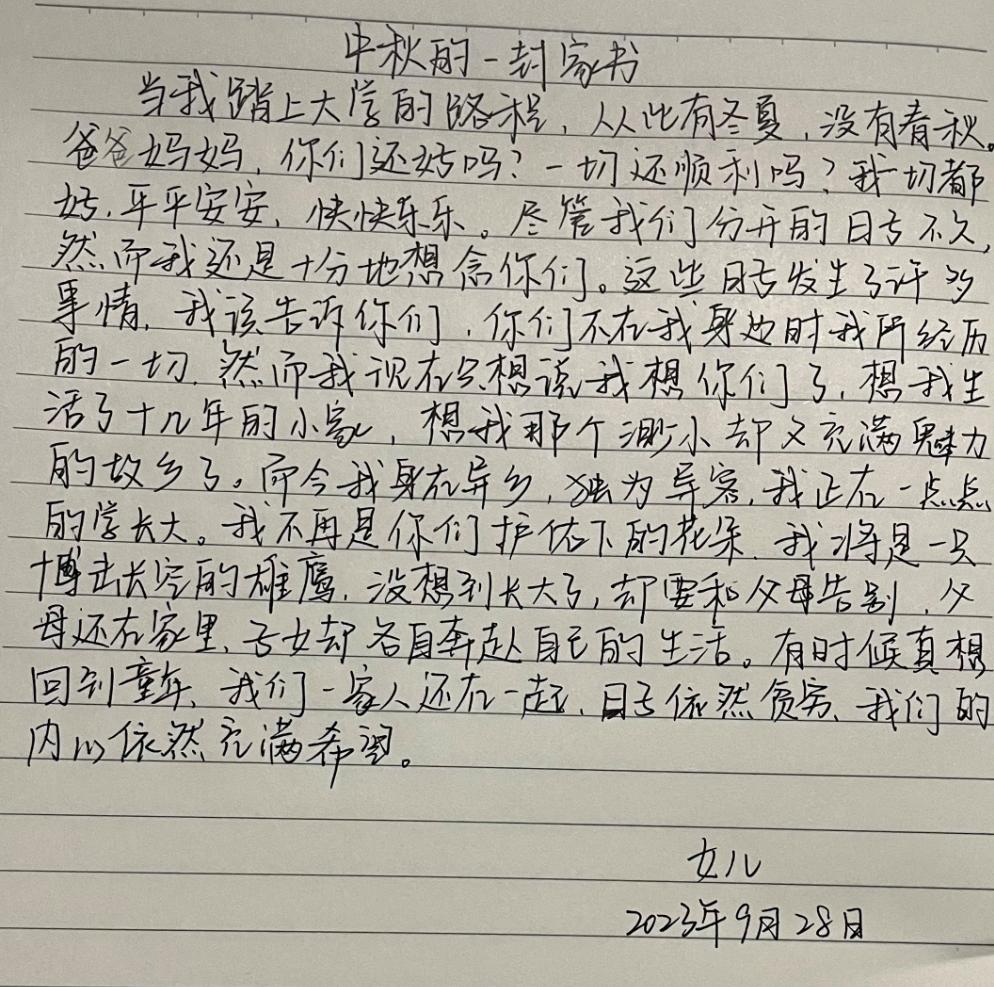 中秋的一封家书
当我踏上大学的路程，从此有冬夏，没有春秋。
爸爸妈妈，你们还好吗？一切还顺利吗？我一切都
好，平平安安，快快乐乐。尽管我们分开的日子不久，
然而我还是十分地想念你们。这些日子发生了许多
事情，我该告诉你们，你们不在我身边时我所经历
的一切，然而我现在只想说我想你们了，想我生
活了十几年的小家，想我那个渺小却又充满魅力
的故乡了。而今我身在异乡，独为异客，我正在一点点
的学长大。我不再是你们护佑下的花朵，我将是一只
搏击长空的雄鹰，没想到长大了，却要和父母告别，父
母还在家里，子女却各自奔赴自己的生活。有时候真想
回到童年，我们一家人还在一起，日子依然贫穷，我们的
内心依然充满希望。
女儿
2023年9月28日